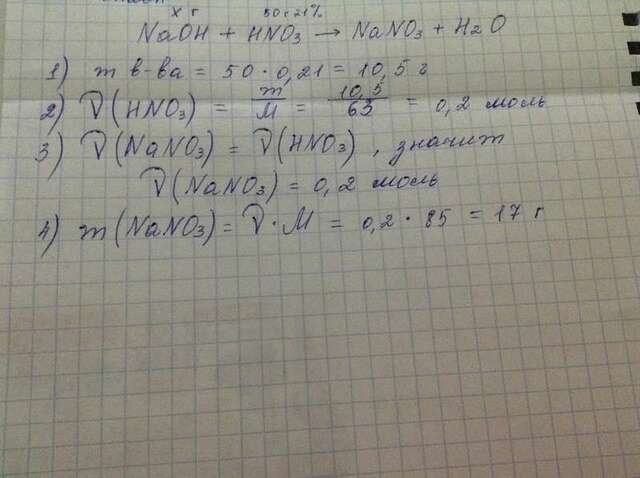 х г 50г 21%
NaOH + HNO3 → NaNO3 + H2O
1) m в-ва = 50 · 0,21 = 10,5 г
2) ν(HNO3) = m/M = 10,5/63 = 0,2 моль
3) ν(NaNO3) = ν(HNO3), значит
ν(NaNO3) = 0,2 моль
4) m(NaNO3) = ν · M = 0,2 · 85 = 17 г